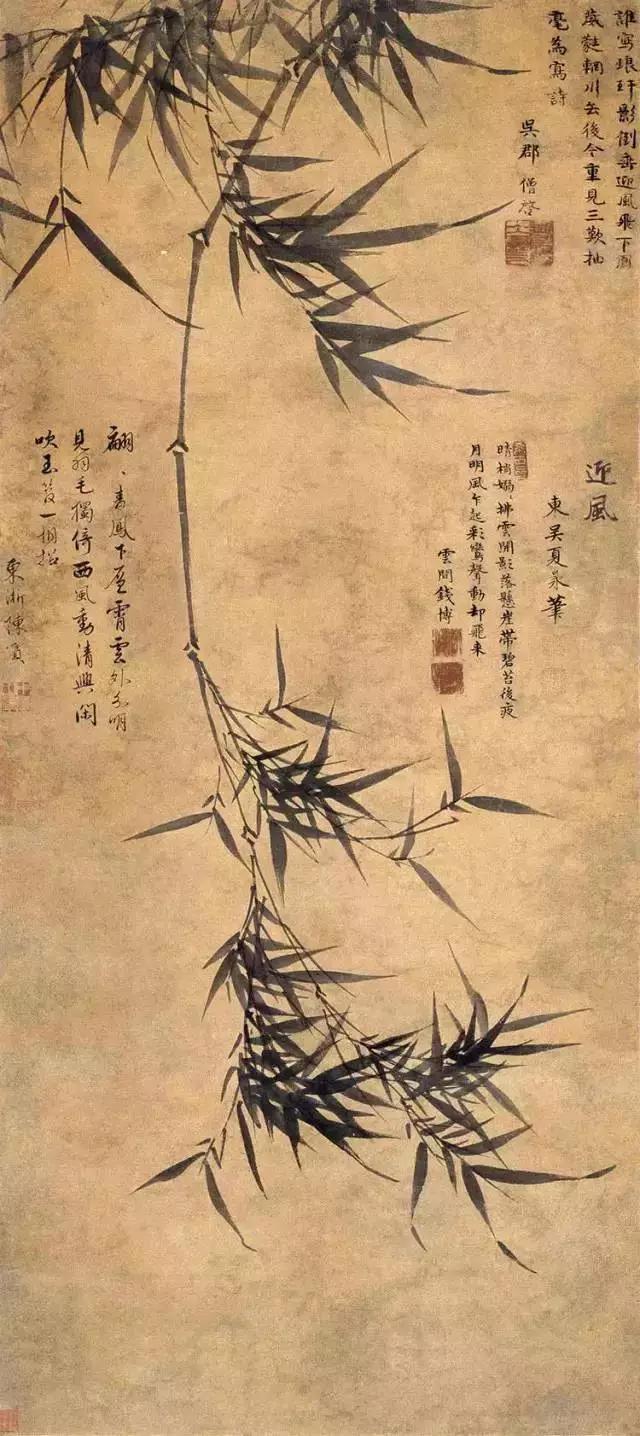 誰寫琅玕影倒垂迎風飛下
葳蕤輞川去後今重見三歎抽
毫為寫詩
吳郡 僧啓
迎風
東吳夏㫤筆
晴梢嫋〻拂雲開影落懸崖帶碧苔後夜
月明風乍起彩鸞聲動却飛來
雲間錢博
翩〻青鳳下層霄雲外分明
見羽毛獨倚西風動清興閑
吹玉一相招
東浙陳